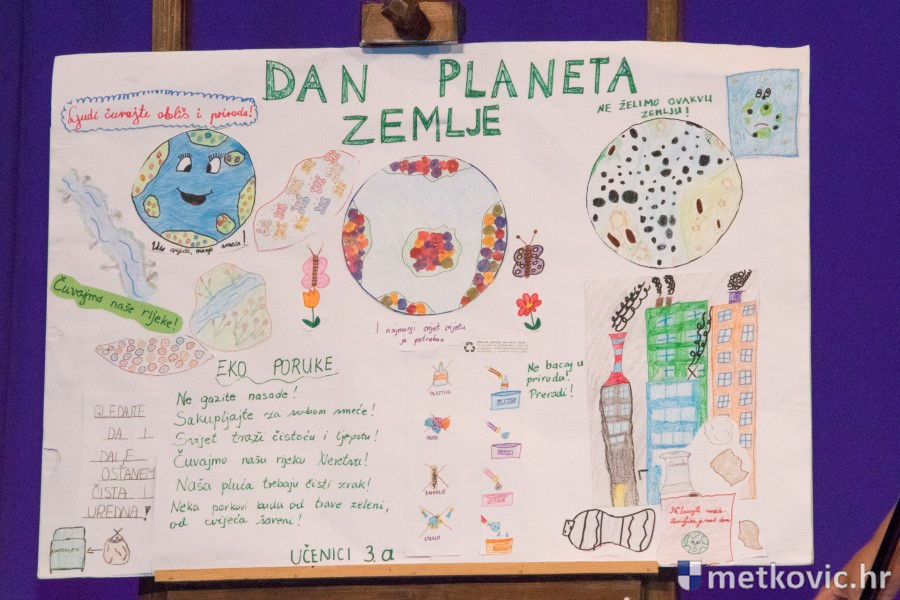 DAN PLANETA
ZEMLJE
Ljudi čuvajte okoliš i prirodu!
NE ŽELIMO OVAKVU
ZEMLJU!
Više cvijeća, manje smeća!
Čuvajmo naše rijeke!
I najmanji cvijet svijetu
je potreban
EKO PORUKE
Ne gazite nasade!
Sakupljajte za sobom smeće!
Svijet traži čistoću i ljepotu!
Čuvajmo našu rijeku Neretvu!
Naša pluća trebaju čisti zrak!
Neka parkovi budu od trave zeleni,
od cvijeća šareni!
GLEDAJTE
DA I
DALJE
OSTANEM
ČISTA I
UREDNA!
PLASTIKA
PAPIR
BATERIJE
STAKLO
Ne bacaj u
prirodu!
Preradi!
Ne bacajte smeće
Zemlja je naš dom
UČENICI 3.a
metkovic.hr